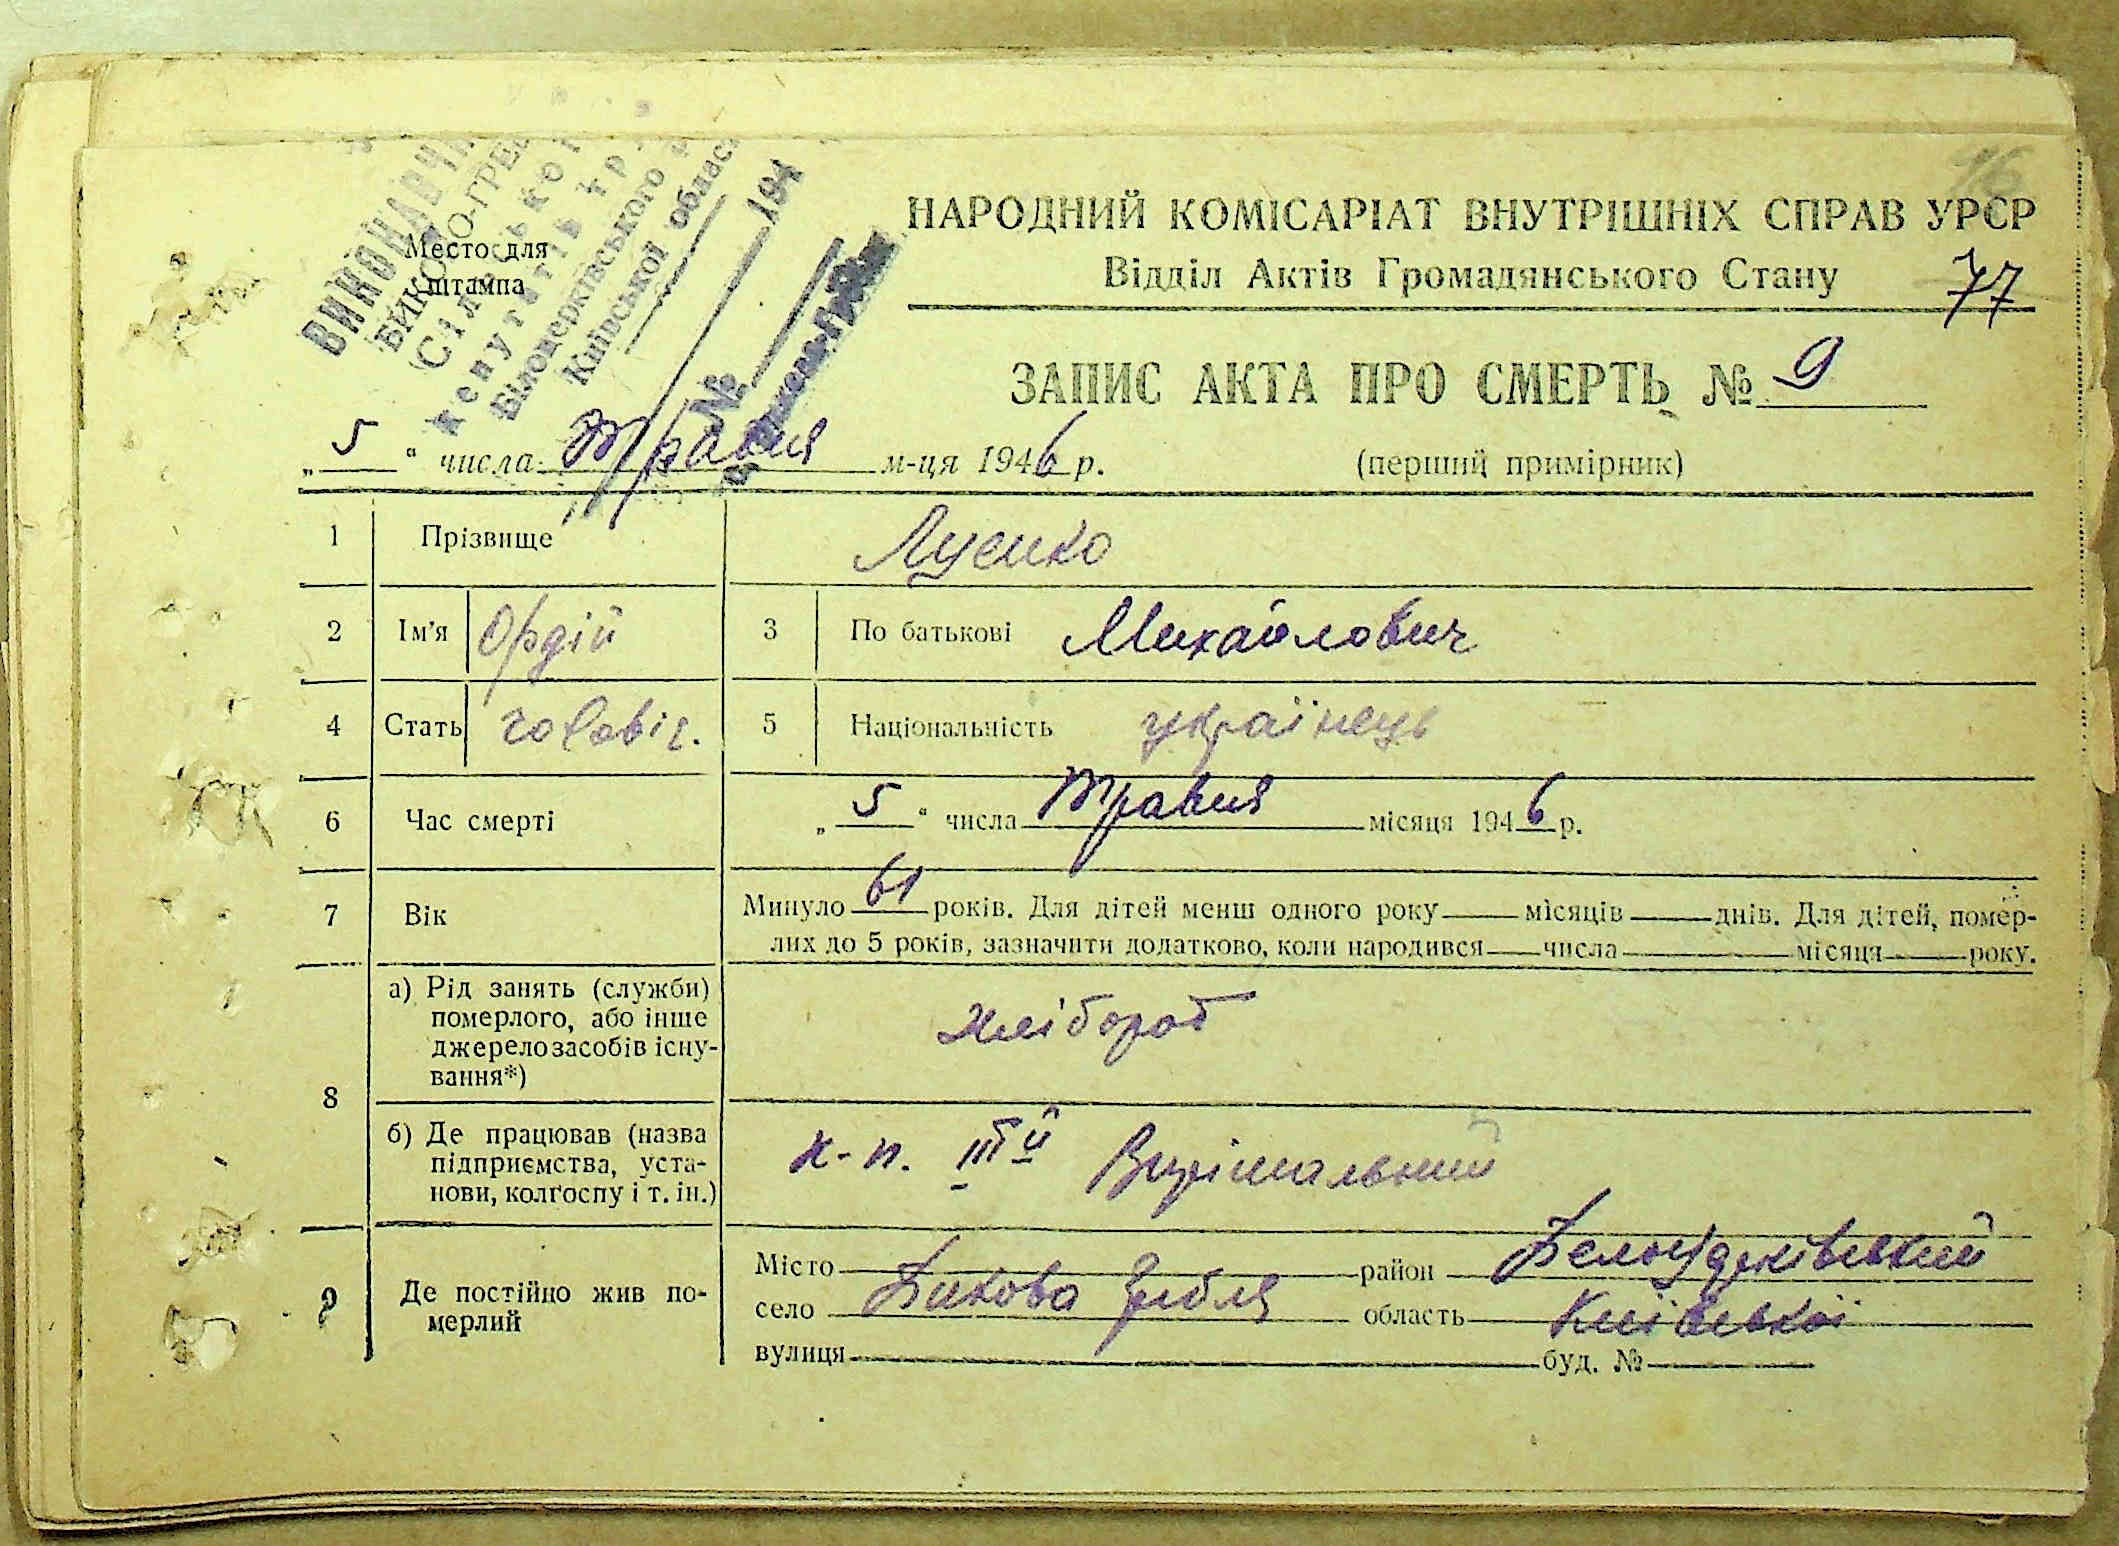 16
НАРОДНИЙ КОМІСАРІАТ ВНУТРІШНІХ СПРАВ УРСР
Відділ Актів Громадянського Стану
77
Место для
штампа
Білоцерківського
Київської област
№ 194
ЗАПИС АКТА ПРО СМЕРТЬ № 9
„ 5 “ числа Травня м-ця 1946 р. (перший примірник)
1 Прізвище Луценко
2 Ім'я Ордій 3 По батькові Михайлович
4 Стать чоловіч. 5 Національність українець
6 Час смерті „ 5 “ числа Травня місяця 1946 р.
7 Вік Минуло 61 років. Для дітей менш одного року місяців днів. Для дітей, помер-
лих до 5 років, зазначити додатково, коли народився числа місяця року.
8 а) Рід занять (служби)
померлого, або інше
джерело засобів існу-
вання*)
хлібороб
б) Де працював (назва
підприємства, уста-
нови, колгоспу і т. ін.)
к-п. ІІІй Вирішальний
9 Де постійно жив по-
мерлий
Місто район Белоцерківський
село Бикова Гребля область Київської
вулиця буд. №